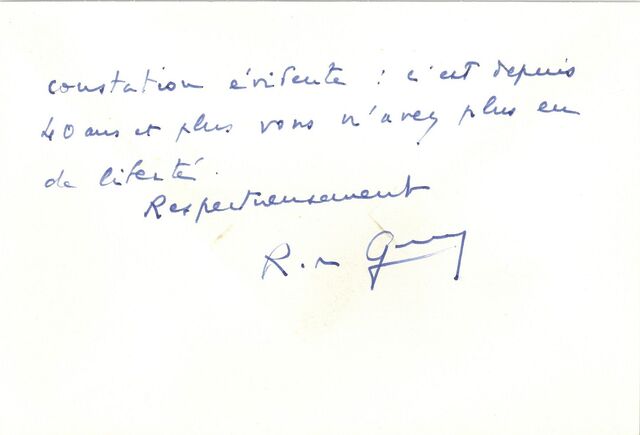 constation évidente : c'est depuis
40 ans et plus vous n'avez plus eu
de liberté.
Respectueusement
R.